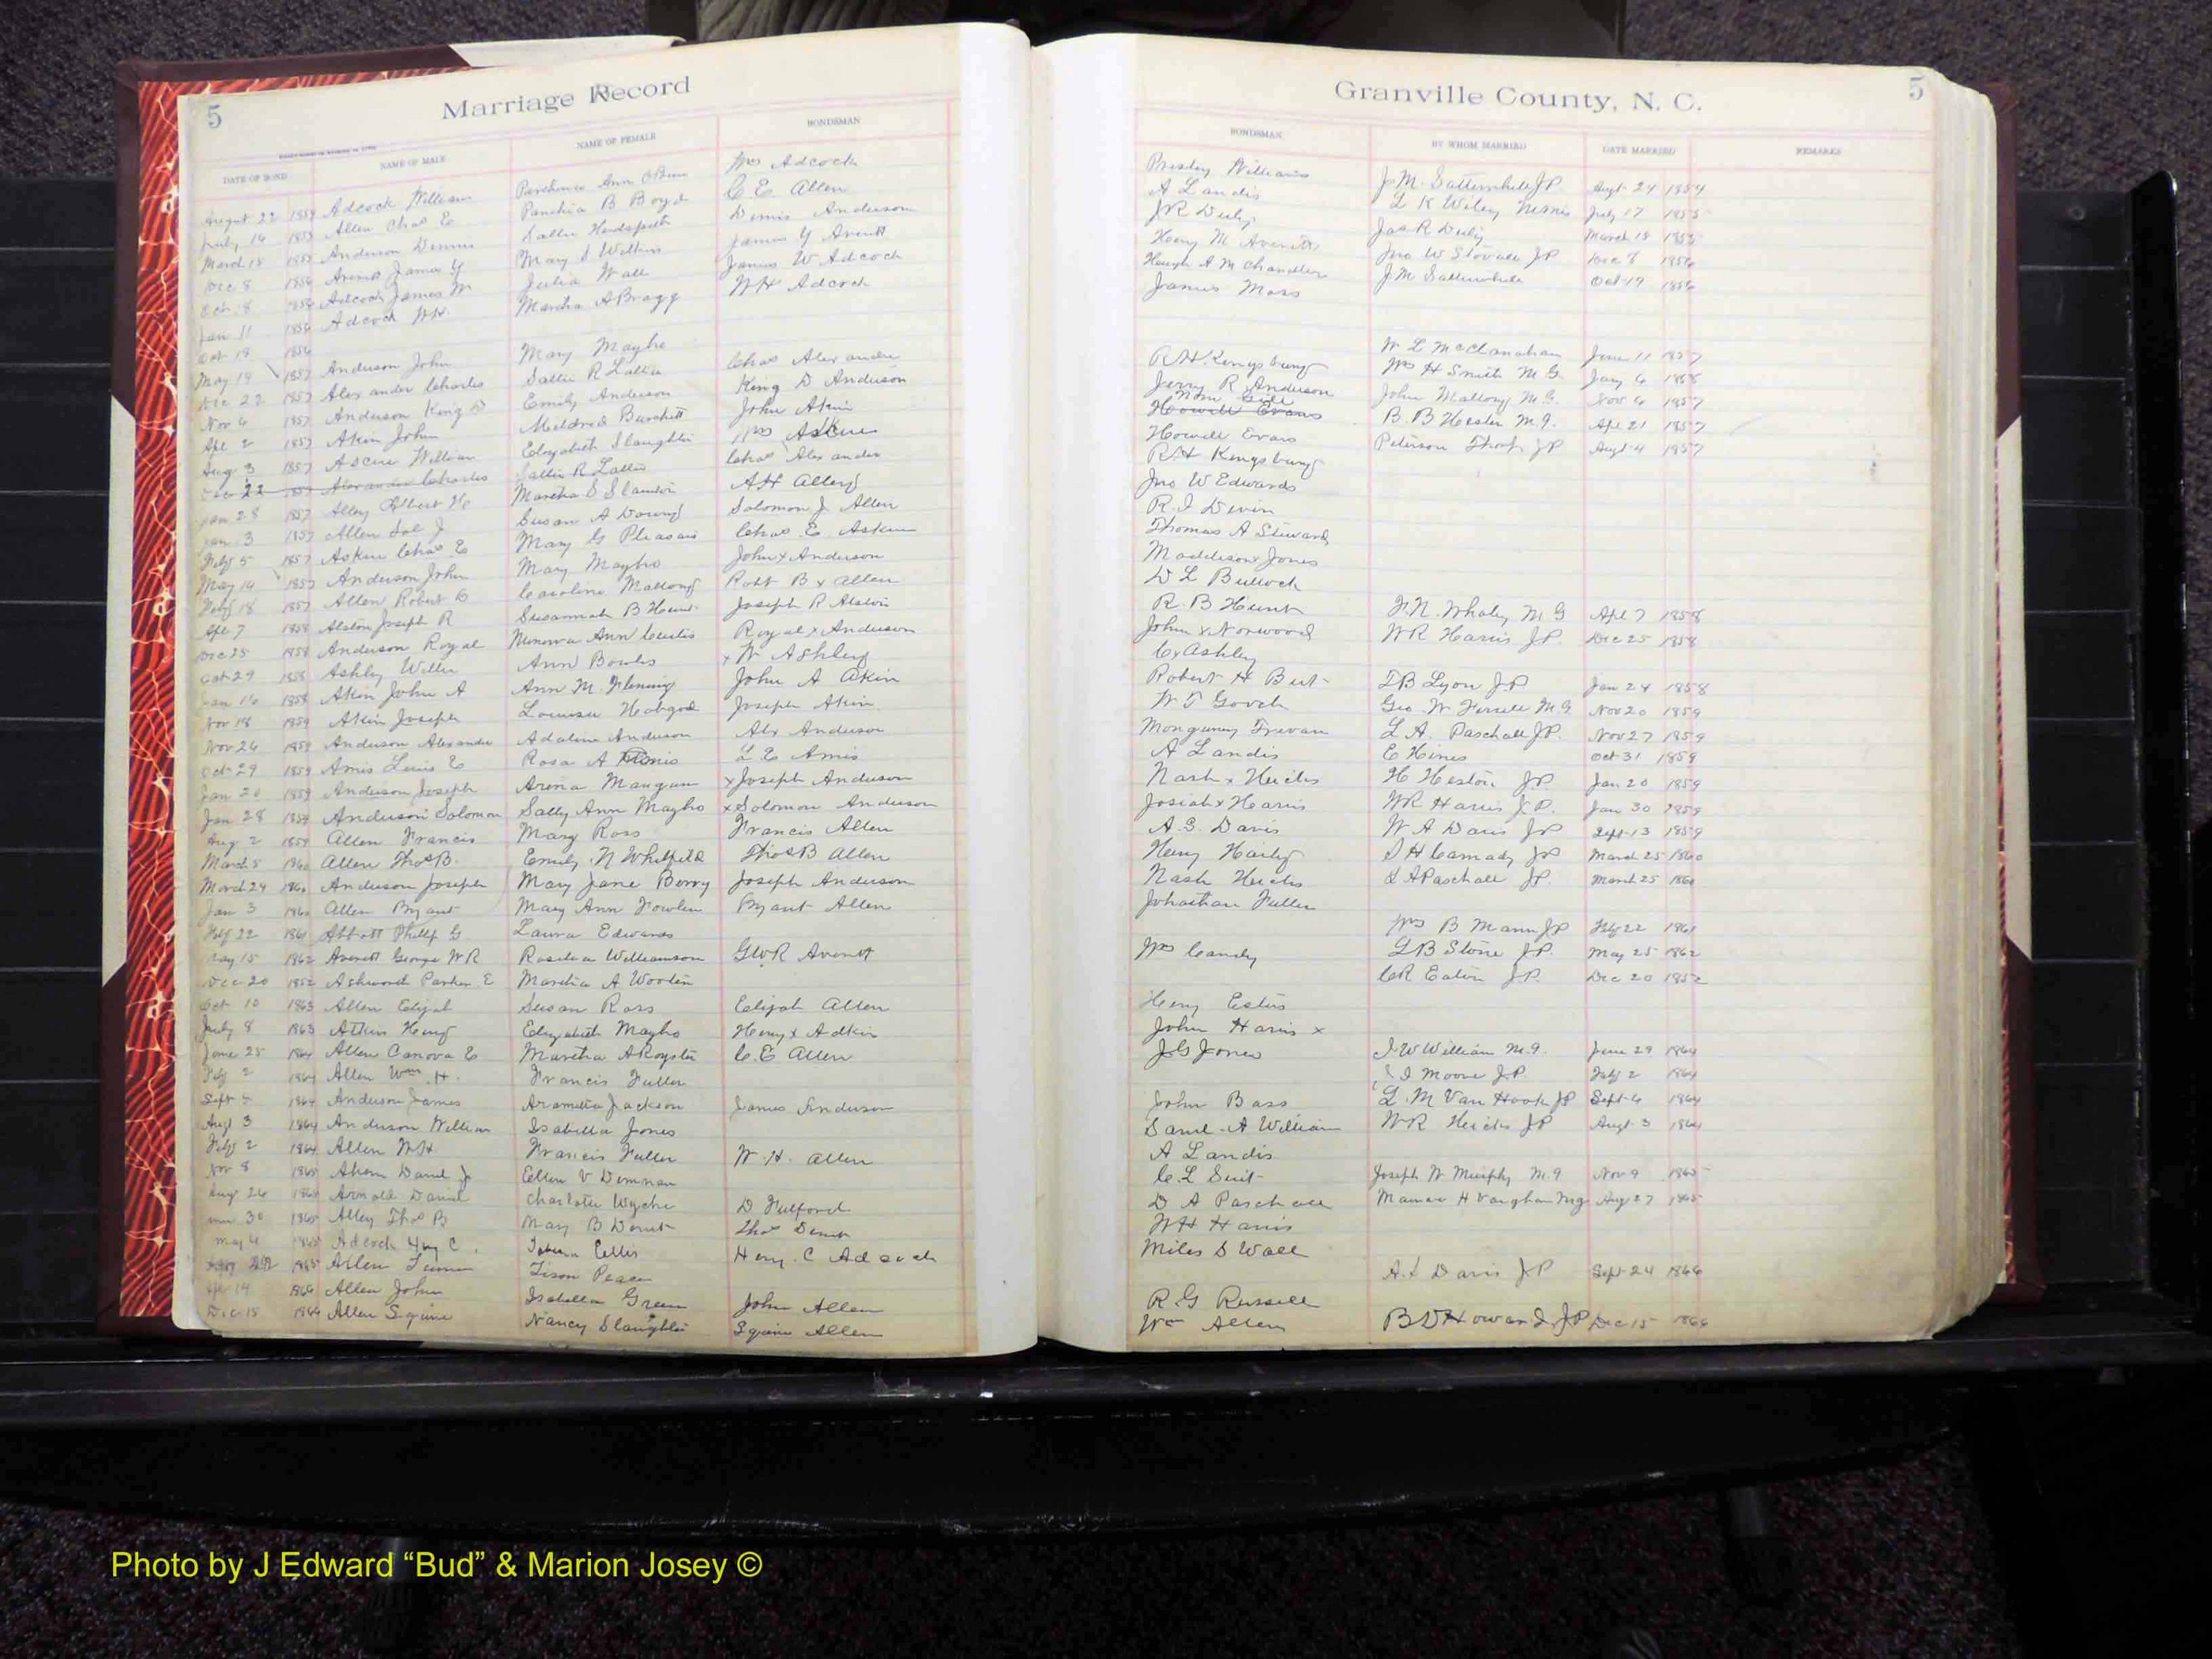 5
Marriage Record
DATE OF BOND NAME OF MALE NAME OF FEMALE BONDSMAN
August 22 1854 Adcock William Ann Wm Adcock
July 16 1855 Allen Chas E B Boyd C E Allen
March 18 1855 Anderson Dennis Sallie Hudspeth Dennis Anderson
Dec 8 1856 James Y Mary S James Y Averett
Oct 18 1856 Adcock James Julia Wall James W Adcock
Jan 11 1856 Adcock WH Martha A Bragg WH Adcock
Oct 18 1856
May 14 1857 Anderson John Mary Mayho
Dec 22 1857 Alexander Charles Sallie R Lattie Chas Alexander
Nov 4 1857 Anderson King D Emily Anderson King D Anderson
Apl 2 1857 Akin John Mildred Burchett John Akin
Aug 3 1857 Ascue William Elizabeth Slaughter Wm Askew
22 Alexander Charles Sallie R Lattie Chas Alexander
Jan 28 1857 Alley Albert Martha S A H Alley
Jan 3 1857 Allen Sol J Susan A Solomon J Allen
Feby 5 1857 Askew Chas E Mary G Chas E Askew
May 14 1857 Anderson John Mary Mayho John x Anderson
Feby 18 1857 Allen Robert B Caroline Mallory Robt B x Allen
Apl 7 1858 Alston Joseph R Susannah B Hunt Joseph R Alston
Dec 25 1858 Anderson Royal Ann Curtis Royal x Anderson
Oct 29 1858 Ashley Ann Bowles x W Ashley
Jan 16 1858 Akin John A Ann M. Fleming John A Akin
Nov 18 1859 Akin Joseph Louisa Hobgood Joseph Akin
Nov 26 1859 Anderson Alexander Adaline Anderson Alx Anderson
Oct 29 1859 Amis Lewis E Rosa A L E Amis
Jan 20 1859 Anderson Joseph Mangum x Joseph Anderson
Jan 28 1859 Anderson Solomon Sally Ann Mayho x Solomon Anderson
Aug 2 1859 Allen Francis Mary Ross Francis Allen
March 5 1860 Allen Thos B. Emily N Whitfield Thos B Allen
March 24 1860 Anderson Joseph Mary Jane Berry Joseph Anderson
Jan 3 1860 Allen Bryant Mary Ann Fowler Bryant Allen
Feby 22 1861 Abbott Phillip G. Laura Edwards
May 15 1862 Averett George W R Williamson G W R Averett
Dec 20 1852 Ashworth Parker E Martha A Wootin
Oct 10 1863 Allen Elijah Susan Ross Elijah Allen
July 8 1863 Atkin Henry Elizabeth Mayho Henry x Adkin
June 25 1864 Allen Canova E Martha A Royster C. E Allen
Feby 2 1864 Allen Wm. H. Francis Fuller
Sept 5 1864 Anderson James Jackson James Anderson
Augt 3 1864 Anderson William Isabella Jones
Feby 2 1864 Allen W H Francis Fuller W. H. Allen
Nov 8 1865 Akern Danl J Ellen V
Aug 26 1865 Arnold David Charlotte Wyche D Fulford
30 1865 Alley Thos B Mary B
May 4 1865 Adcock Hny C. Ellis Heny. C Adcock
1865 Allen Tison Peace
Apr 14 1866 Allen John Isabella Green John Allen
Dec 15 1866 Allen Squire Nancy Slaughter Squire Allen
Granville County, N. C.
5
BONDSMAN BY WHOM MARRIED DATE MARRIED REMARKS
Presley Williams J. M. Satterwhite JP Augt 24 1854
A Landis L K Wiley July 17 1855
J R Duty Jas R Duty March 18 1855
Heny M Averett Jno W Stovall JP Dec 8 1856
Hugh A M Chandler J M Satterwhite Oct 19 1856
James Moss
R H Kingsbury W L McClanahan June 11 1857
Jerry R Anderson Wm H Smith M G. Jany 6 1858
Wm Gill John Mallory M. G. Nov 4 1857
Howell Evans B. B Hester M. G. Apl 21 1857
Howell Evans Peterson Thorp JP Augt 4 1857
R H Kingsbury
Jno W Edwards
R. J Devin
Thomas A Steward
Maddison x Jones
W L Bullock
R. B Hunt F. N. Whaley M G Apl 7 1858
John x Norwood W R Harris J P. Dec 25 1858
C x Ashley
Robert H But T B Lyon J P Jan 24 1858
W T Gooch Geo. W Ferrell M G Nov 20 1859
L A. Paschall J P. Nov 27 1859
A Landis E Hines Oct 31 1859
Nash x Hicks H Hester J P. Jan 20 1859
Josiah x Harris W R Harris J P. Jan 30 1859
A. S. Davis W A Davis JP Sept 13 1859
Heny Haily S H Cannady JP March 25 1860
Nash Hicks L A Paschall JP. March 25 1860
Johnathan Fuller
Wm B Mann JP Feby 22 1861
Wm Candy L B Stone J P. May 25 1862
C R Eaton J P. Dec 20 1852
Heny Estes
John Harris x
J. G Jones J. W William M. G. June 29 1864
J Moore J. P. Feby 2 1864
John Bass L. M Van Hook JP Sept 6 1864
Saml A William W R Hicks JP Augt 3 1864
A Landis
C. L Suit Joseph W Murphy M. G Nov 9 1865
D A Paschall H Vaughan M g Aug 27 1865
W H Harris
Miles S Wall
A. S Davis J P Sept 24 1866
R. G Russell
Wm Allen B D Howard, JP Dec 15 1866
Photo by J Edward “Bud” & Marion Josey ©